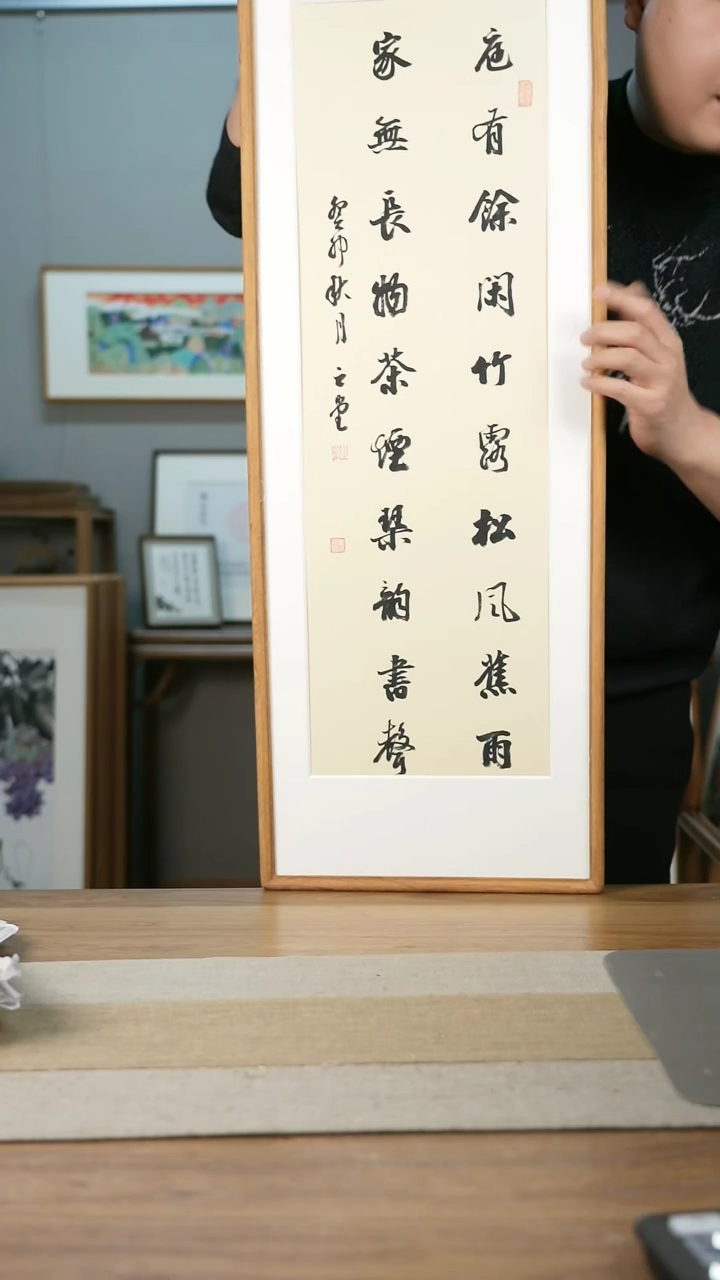 庭有餘閑竹露松風蕉雨
家無長物茶煙琹韵書聲
癸卯秋月之堂